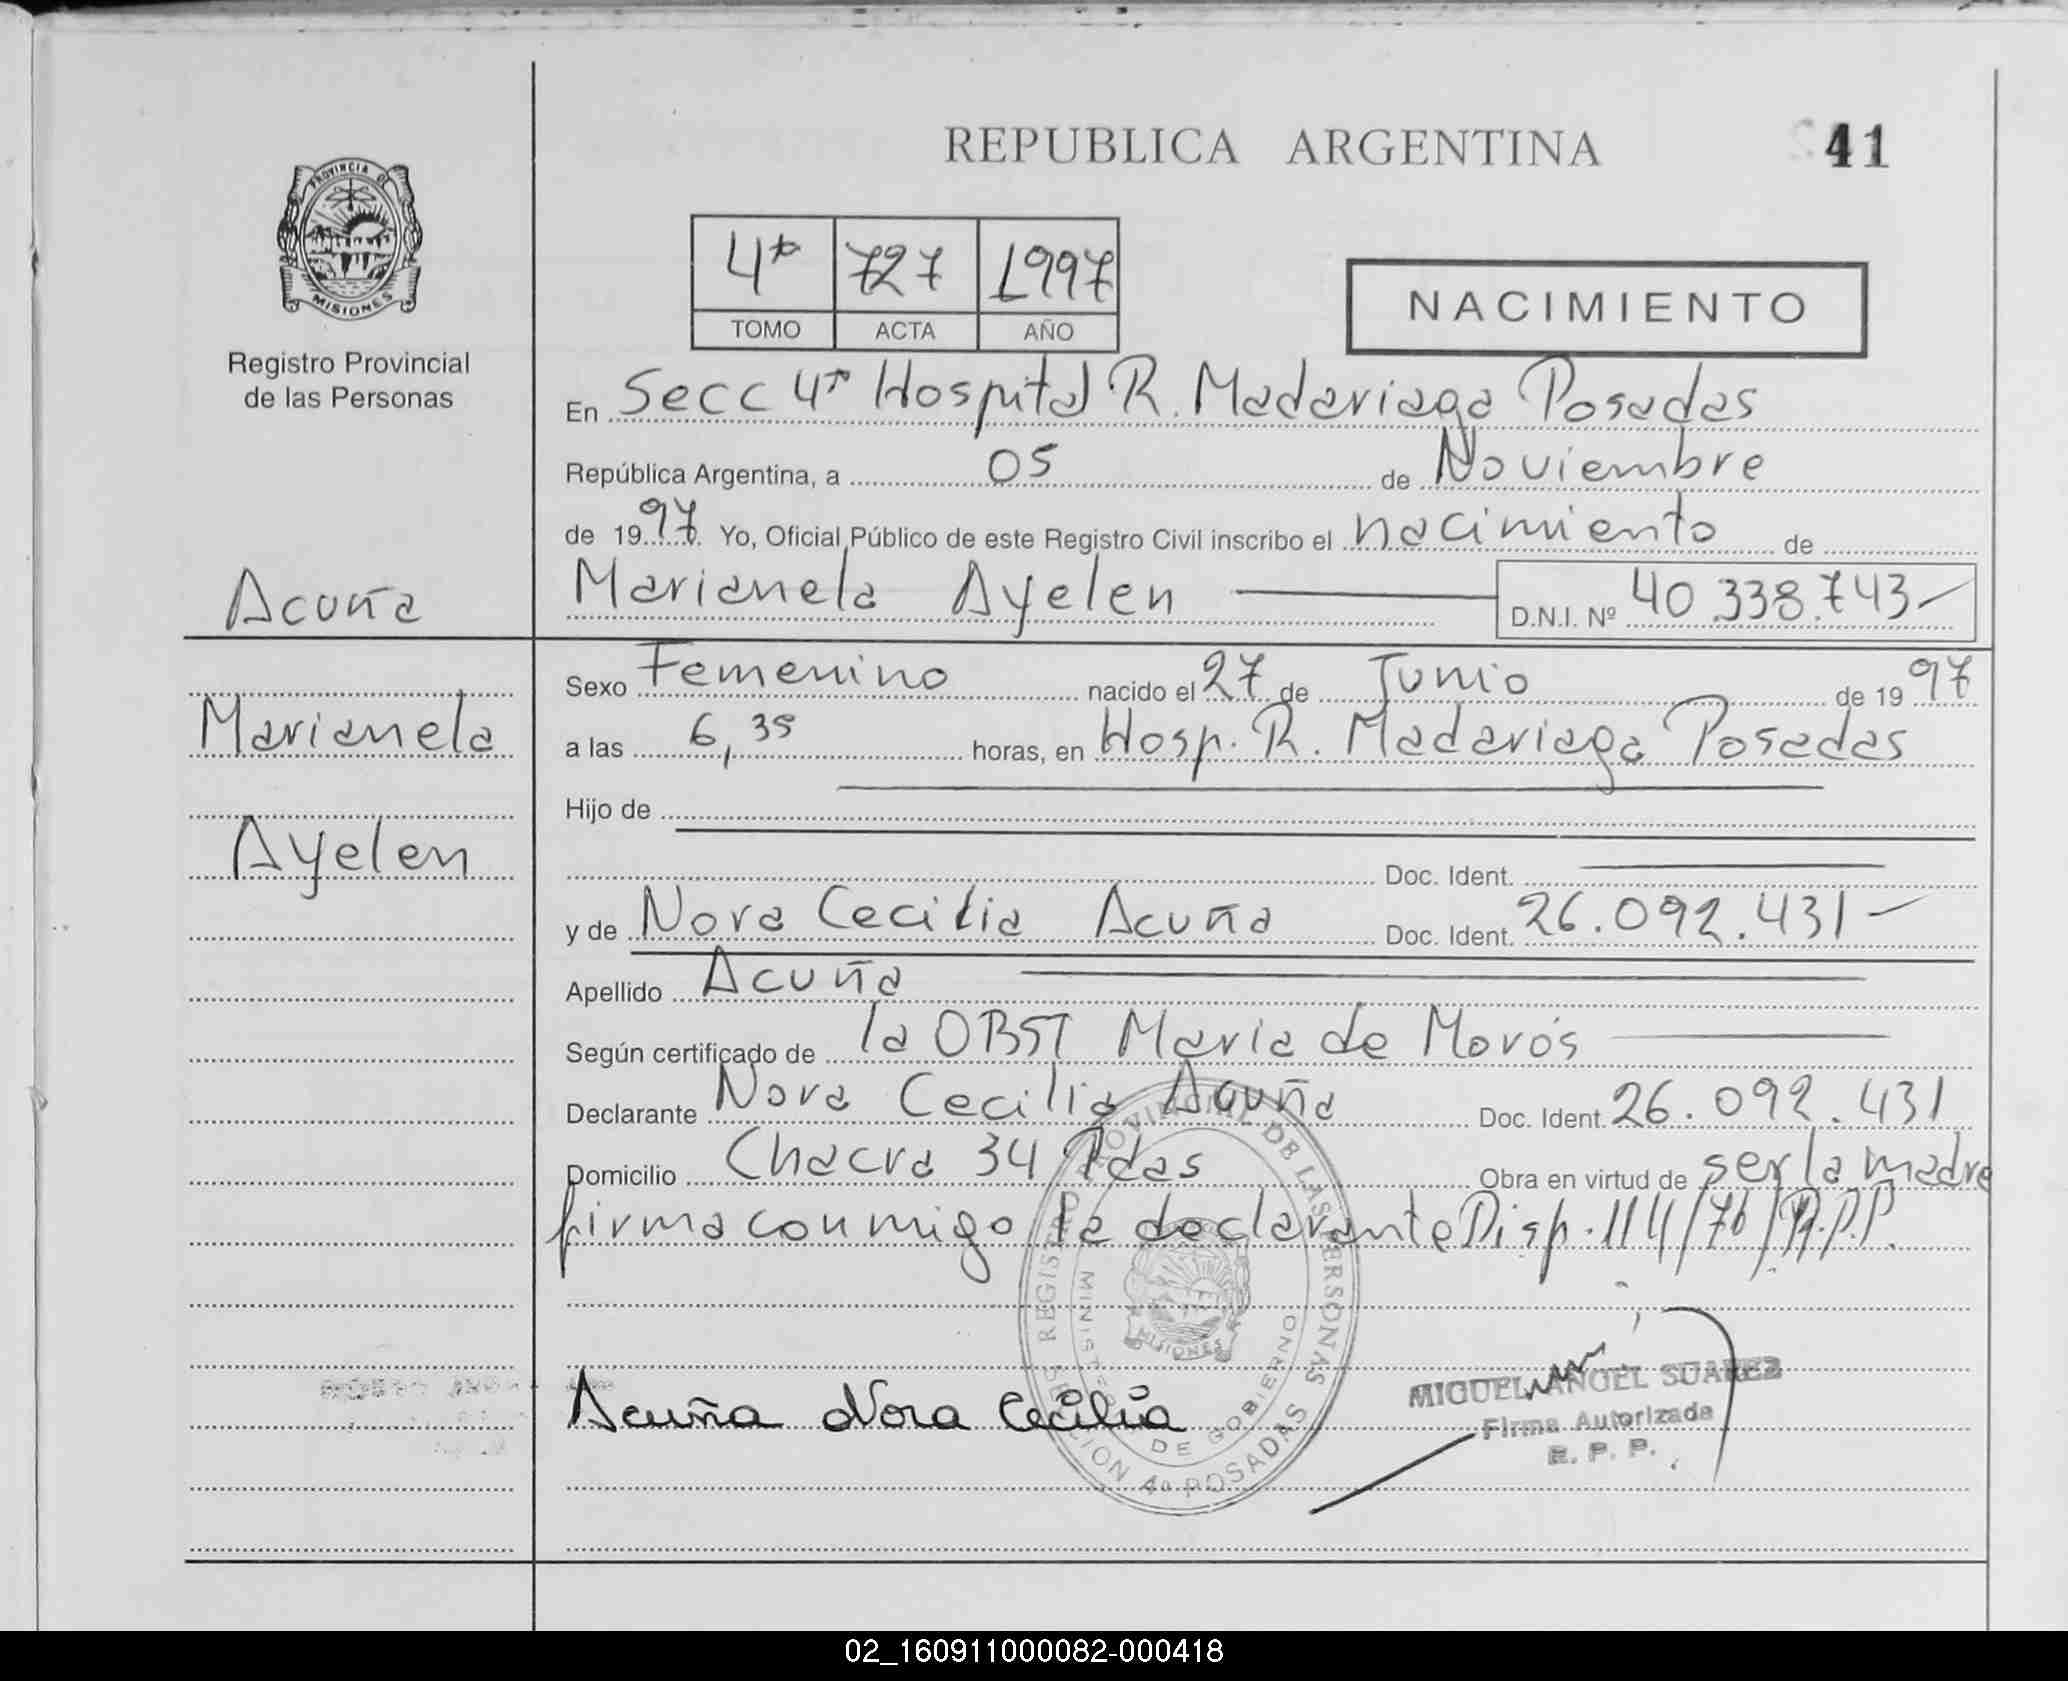 REPUBLICA ARGENTINA
41
PROVINCIA DE
MISIONES
Registro Provincial
de las Personas
4ª 727 1997
TOMO ACTA AÑO
NACIMIENTO
En Secc 4ª Hospital R. Madariaga Posadas
República Argentina, a 05 de Noviembre
de 1997 Yo, Oficial Público de este Registro Civil inscribo el nacimiento de
Acuña
Marianela Ayelen D.N.I. Nº 40.338.743
Marianela
Ayelen
Sexo Femenino nacido el 27 de Junio de 1997
a las 6,35 horas, en Hosp. R. Madariaga Posadas
Hijo de
Doc. Ident.
y de Nora Cecilia Acuña Doc. Ident. 26.092.431
Apellido Acuña
Según certificado de la OBST Maria de Morós
Declarante Nora Cecilia Acuña Doc. Ident. 26.092.431
Domicilio Chacra 34 Pdas Obra en virtud de ser la madre
firma conmigo la declarante Disp. 114/76/R.P.P.
REGISTRO PROVINCIAL DE LAS PERSONAS
MINISTERIO DE GOBIERNO
MISIONES
SECCION 4a POSADAS
Acuña Nora Cecilia
MIGUEL ANGEL SUAREZ
Firma Autorizada
R. P. P.
02_160911000082-000418